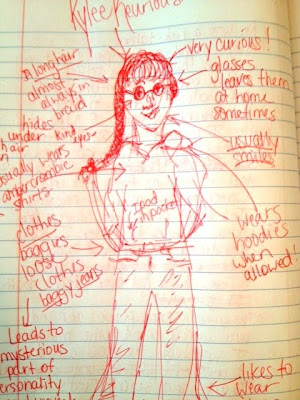 Kylee Kurious
longhair
almost
always in
braid
hides
under
hair
kind
eyes
usually wears
abercrombie
shirts
clothes
baggies
loose
clothis
baggy jeans
Leads to
mysterious
part of
personality
very curious!
glasses
leaves them
at home
sometimes
usually
smiles
Ipod
pocket
wears
hoodies
when
allowed!
likes to
wear